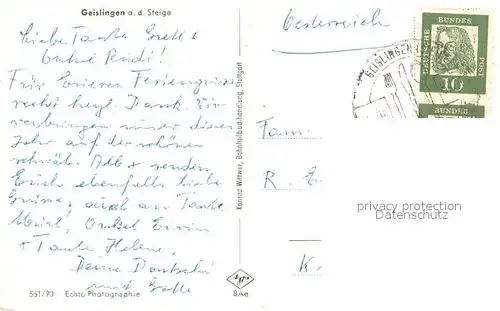 Geislingen a. d. Steige
Liebe Tante Gretl +
Onkel Rudi!
Für Eueren Feriengruss
recht herzl. Dank. Wir
verbringen unser dieses
Jahr auf der schönen
schwäb. Alb + senden
Euch ebenfalls liebe
Grüsse, auch an Tante
Onkel Erwin
+ Tante Helene.
Deine
mit
561/93 Echte Photographie
Konrad Wittwer, Bahnhofbuchhandlung, Stuttgart
BAe
Oesterreich
GEISLINGEN
DEUTSCHE BUNDES POST
10
BUNDES
Fam.
R. E
K.
privacy protection
Datenschutz